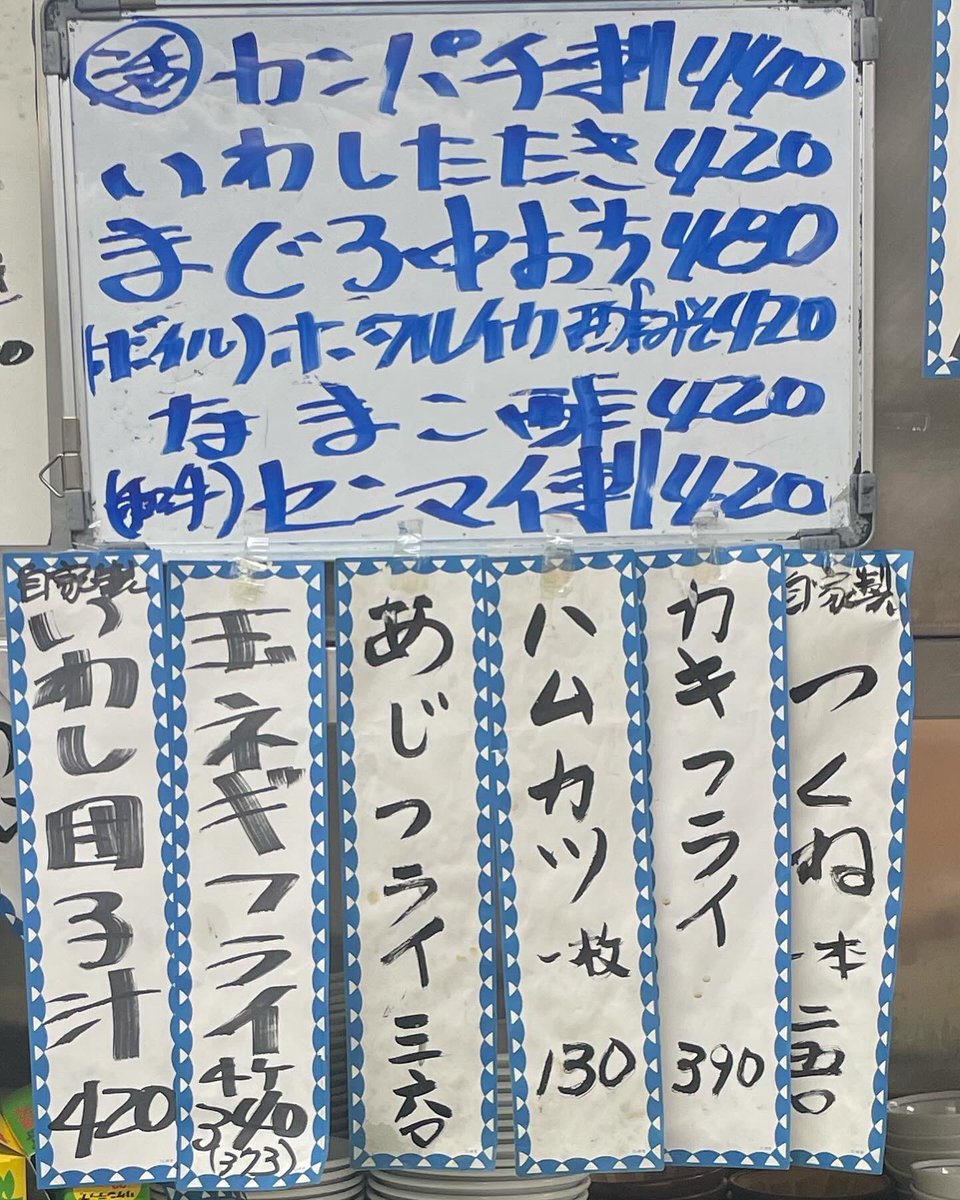 活 カンパチ刺 440
いわしたたき 420
まぐろ中おち 480
(ボイル)ホタルイカ酢みそ 420
なまこ酢 420
(和牛)センマイ刺 420
自家製
つくね
一本
二五〇
カキフライ
390
ハムカツ
一枚
130
あじフライ
三六〇
玉ネギフライ
4ケ
340
(373)
自家製
いわし団子汁
420